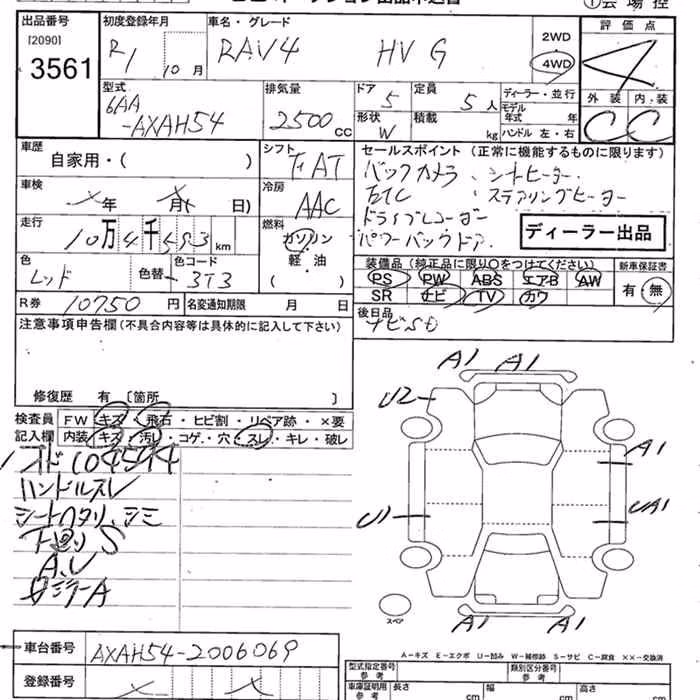 出品番号
[2090]
3561
初度登録年月
R1
10月
車名・グレード
RAV4 HV G
2WD
4WD
評価点
4
外装 内装
C C
型式
6AA
-AXAH54
排気量
2500cc
ドア
5
形状
W
定員
5人
積載
kg
ディーラー・並行
モデル
年式 年
ハンドル 左・右
車歴
自家用・( )
車検
年 月( 日)
走行
10万4千593km
シフト
AT
冷房
AAC
燃料
ガソリン
軽・油
( )
セールスポイント (正常に機能するものに限ります)
バックカメラ、シートヒーター
ETC、ステアリングヒーター
ドライブレコーダー
パワーバックドア
ディーラー出品
色
レッド
色替
色コード
3T3
R券
10750円
名変通知期限 月 日
装備品(純正品に限り○をつけてください)
PS PW ABS エアB AW
SR ナビ TV カワ
新車保証書
有・無
後日品
ナビSD
注意事項申告欄(不具合内容等は具体的に記入して下さい)
修復歴 有 〔箇所 〕
検査員
記入欄
FW キズ・飛石・ヒビ割・リペア跡・×要
内装 キズ・汚レ・コゲ・穴・スレ・キレ・破レ
104594
ハンドルスレ
シートヘタリ、シミ
下廻りS
A.U
ミラーA
A1 A1
U2
A1
U1
UA1
A1 A1
スペア
A-キズ E-エクボ U-凹み W-補修跡 S-サビ C-腐食 ××-交換済
車台番号
AXAH54-2006069
登録番号
型式指定番号
参考
類別区分番号
参考
車庫証明用
参考
長さ cm
幅 cm
高さ cm